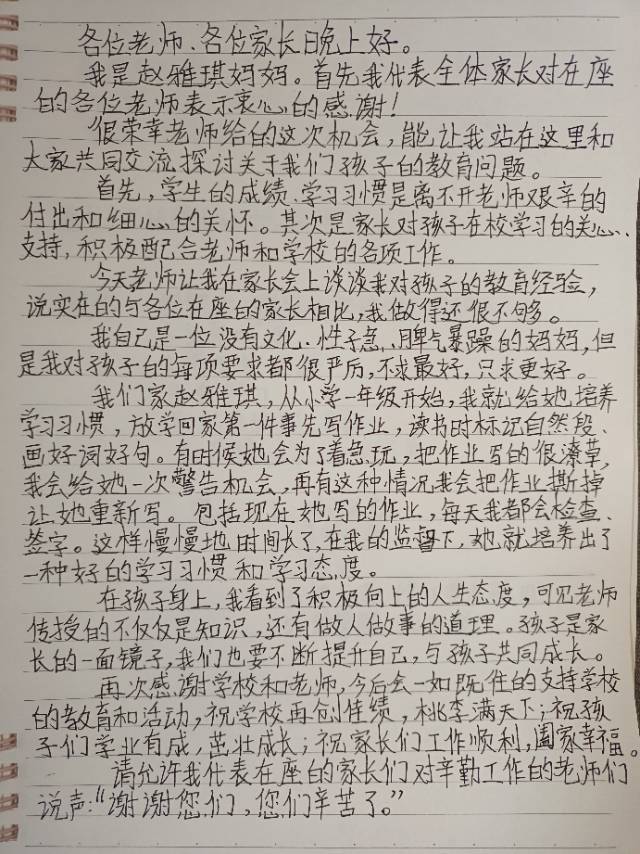 各位老师、各位家长晚上好。
我是赵雅琪妈妈。首先我代表全体家长对在座
的各位老师表示衷心的感谢！
很荣幸老师给的这次机会，能让我站在这里和
大家共同交流探讨关于我们孩子的教育问题。
首先，学生的成绩、学习习惯是离不开老师艰辛的
付出和细心的关怀。其次是家长对孩子在校学习的关心、
支持，积极配合老师和学校的各项工作。
今天老师让我在家长会上谈谈我对孩子的教育经验，
说实在的与各位在座的家长相比，我做得还很不够。
我自己是一位没有文化、性子急、脾气暴躁的妈妈，但
是我对孩子的每项要求都很严厉，不求最好，只求更好。
我们家赵雅琪，从小学一年级开始，我就给她培养
学习习惯，放学回家第一件事先写作业，读书时标记自然段、
画好词好句。有时候她会为了着急玩，把作业写的很潦草，
我会给她一次警告机会，再有这种情况我会把作业撕掉
让她重新写。包括现在她写的作业，每天我都会检查、
签字。这样慢慢地时间长了，在我的监督下，她就培养出了
一种好的学习习惯和学习态度。
在孩子身上，我看到了积极向上的人生态度，可见老师
传授的不仅仅是知识，还有做人做事的道理。孩子是家
长的一面镜子，我们也要不断提升自己，与孩子共同成长。
再次感谢学校和老师，今后会一如既往的支持学校
的教育和活动，祝学校再创佳绩，桃李满天下；祝孩
子们学业有成，茁壮成长；祝家长们工作顺利，阖家幸福。
请允许我代表在座的家长们对辛勤工作的老师们
说声：“谢谢您们，您们辛苦了。”